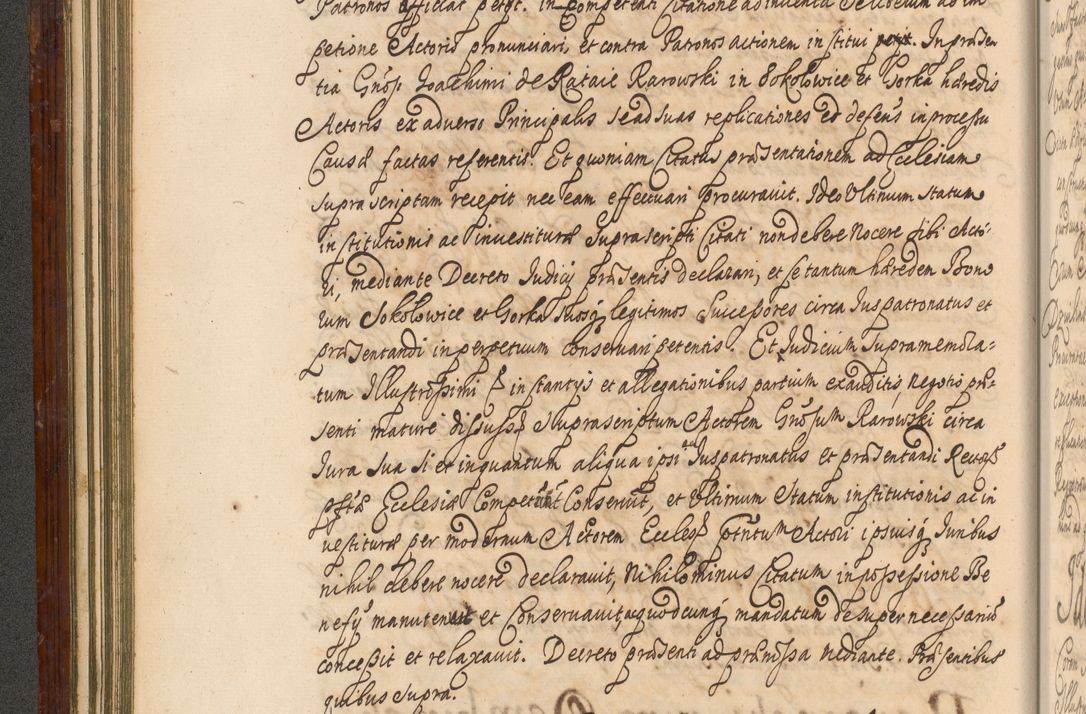 Patronos afficiat petit. in competenti Citatione ad inventa
petione Actoris pronunciari, et contra Patronos actionem institui petit. In præsen
tia Gnosi Joachimi de Rataie Karowski in Sokołowice et Gorka hæredis
Actoris ex adverso Principalis se ad suas replicationes et defens in processu
Causæ factas referentis. Et quoniam Citatus præsentationem ad Ecclesiam
supra scriptam recepit nec eam effectuari procuravit. Ideo Ultimum statum
institutionis ac investituræ suprascripti Citati non debere Nocere sibi Acto-
ri, mediante Decreto Judicij præsentis declarari, et se tantum hæredem Bono
rum Sokołowice et Gorka suosq legitimos Successores circa Juspatronatus et
præsentandi in perpetuum conservari petentis. Et Judicium supramemora-
tum Illustrissimi instantijs et allegationibus partium exauditis, Negotio præ-
senti mature discusso suprascriptum Actorem Gnosum Karowski circa
Jura sua si et inquantum aliqua ipsi ad Juspatronatus et præsentandi
Ecclesiæ Competunt Conservavit, et Ultimum Statum institutionis ac in
vestituræ per modernum Actorem Actori ipsiusq Juribus
nihil debere nocere declaravit, Nihilominus Citatum in possessione Be
nefij manutenuit et Conservavit, quodcunq mandatum desuper necessarium
concessit et relaxavit. Decreto præsenti ad præmissa mediante. Præsentibus
quibus supra.